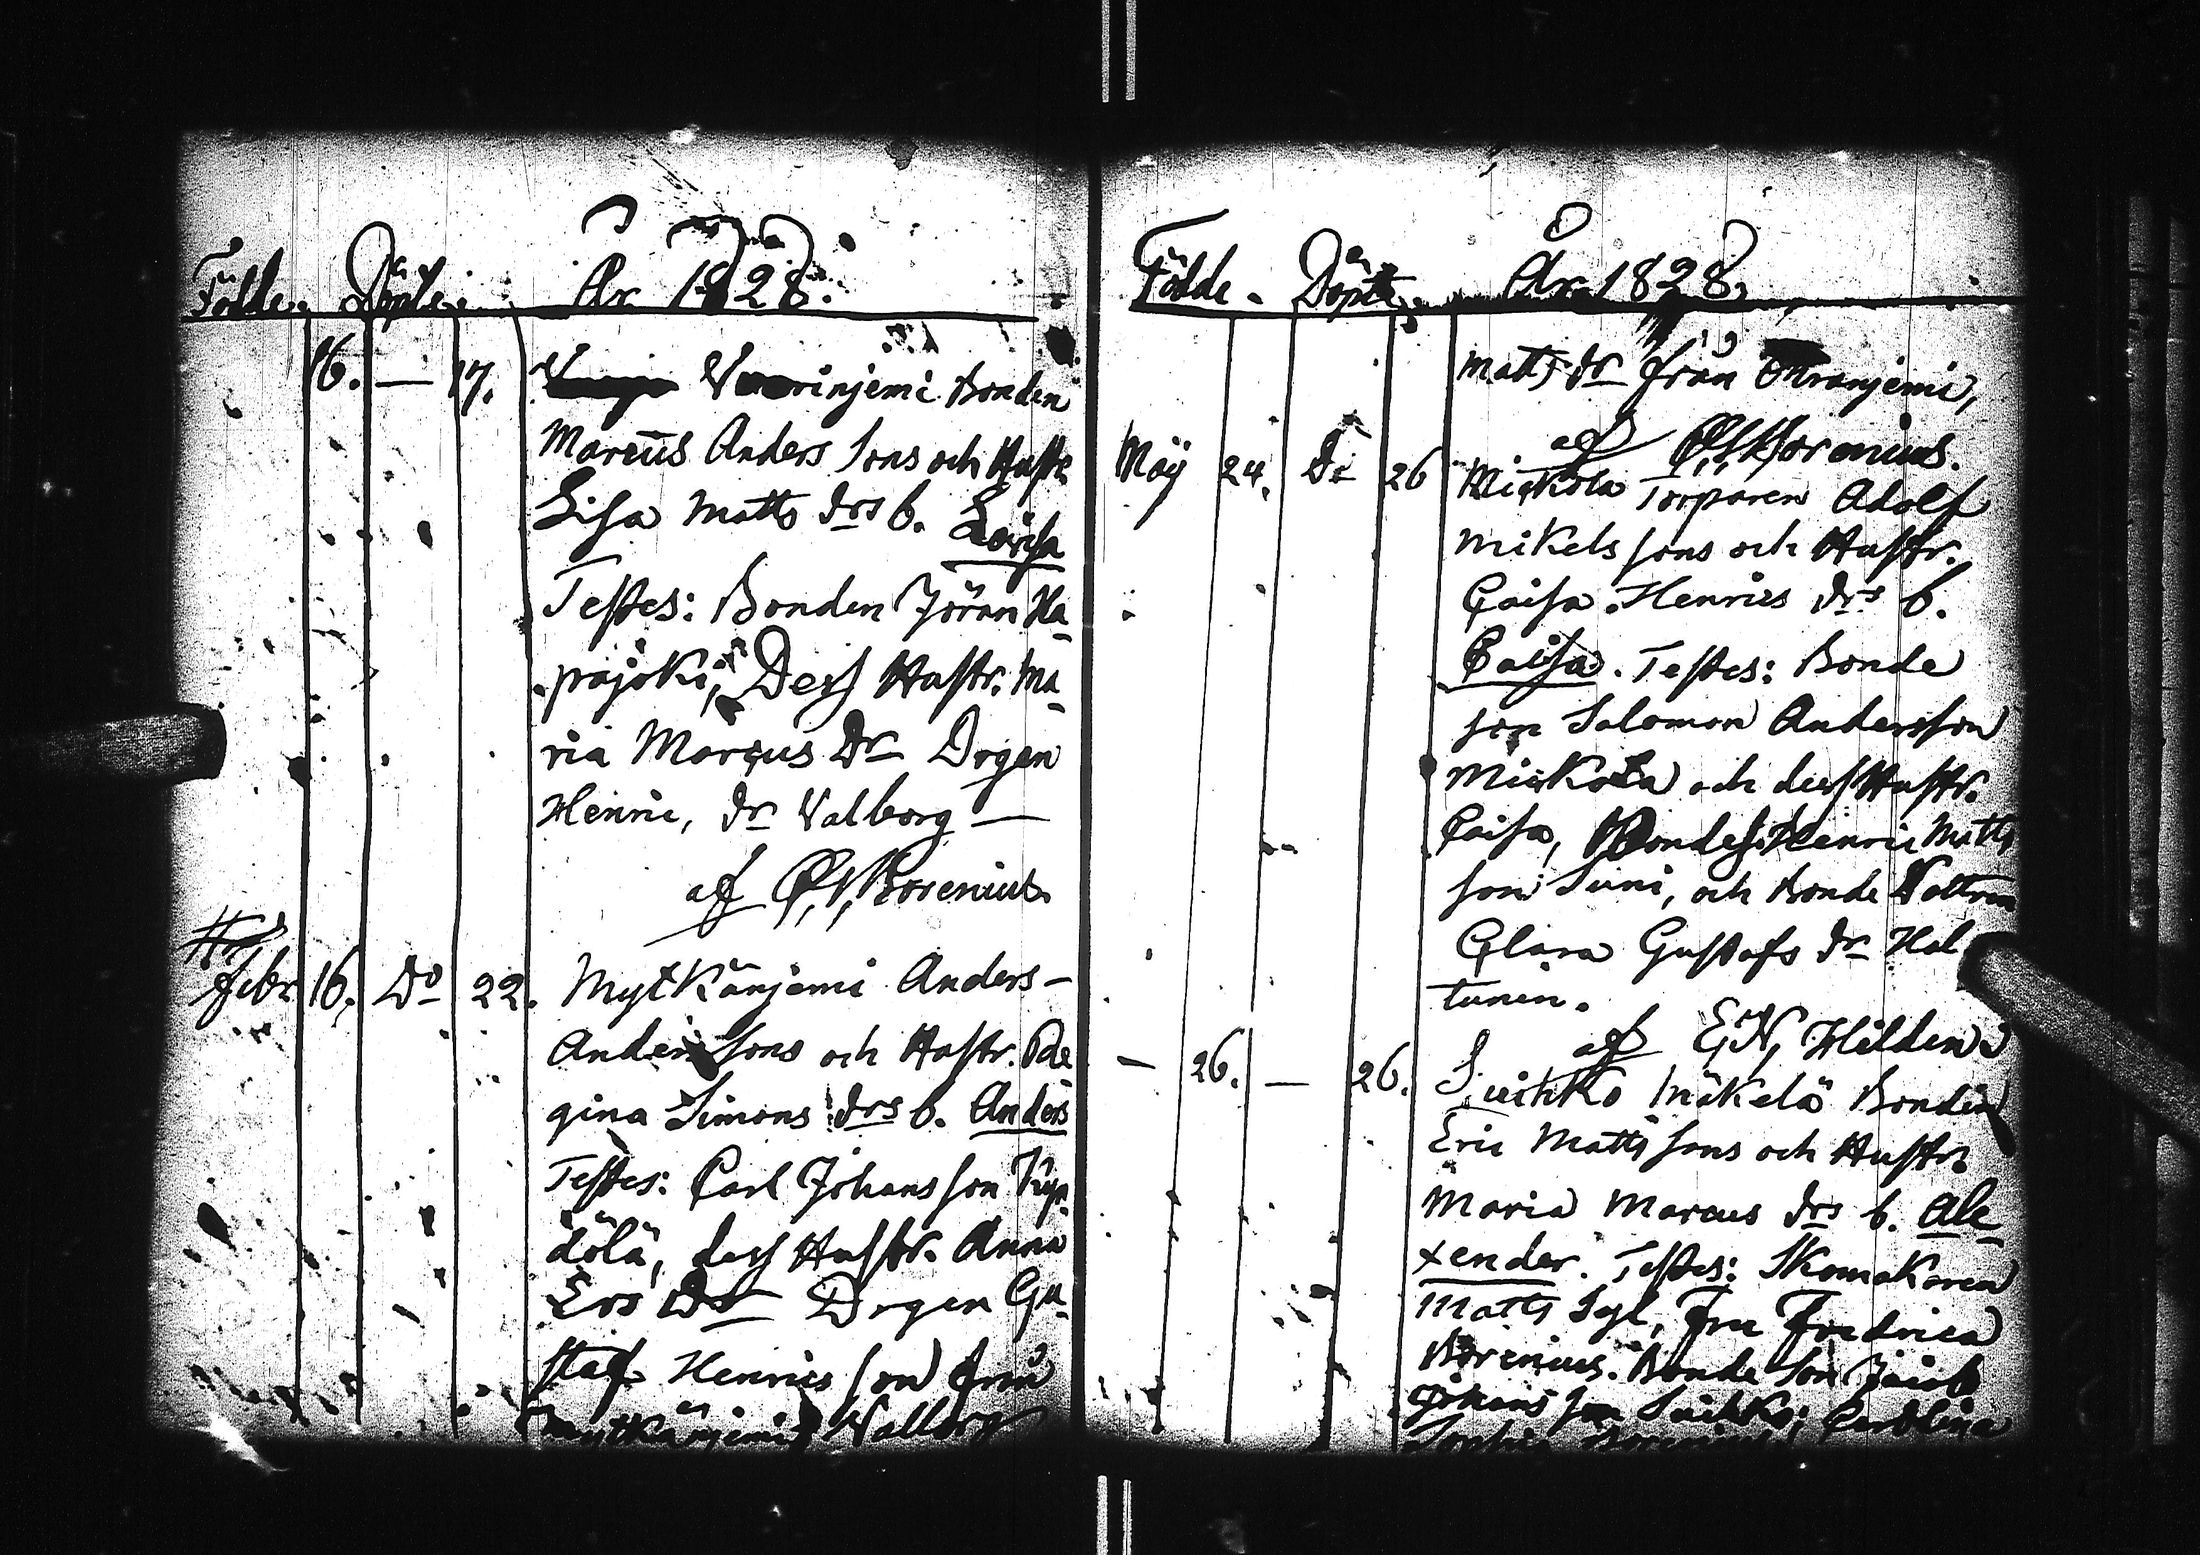 Födde. Döpte. År 1828.
16. — 17. Vuorinjemi Bonden
Marcus Anders Sons och Hustr.
Lisa Matts drs b. Lovisa
Testes: Bonden Jöran Ha-
pajoki, Dess Hustr. Ma-
ria Marcus Dr Drgen
Henric, dr Valborg —
af C,V,Borenius.
Febr 16. Do 22. Mytkänjemi Anders
Anders Sons och Hustr. Re
gina Simons drs b. Anders
Testes: Carl Johans son
dölä, dess Hustr. Anna
Ers Dr Drgen Gu-
staf Henrics son från
Mytkänjemi, Valborg
Födde. Döpte. År 1828.
Matts dr från
af Borenius.
Maij 24. Do 26 Mickola Torparen Adolf
Mikels sons och Hustr.
Caisa Henrics drs b.
Caisa. Testes: Bonde
son Salomon Andersson
Mickola och dess Hustr.
Caisa, Bondes. Henric Matts
son Suni, och Bonde Dottren
Clara Gustafs dr Hal
tunin.
af E,N, Hildén
— 26. — 26. Suihko Mäkelä Bonden
Eric Matts sons och Hustr.
Maria Marcus drs b. Ale-
xender. Testes: Skomakaren
Matts Syl, Fru Fredrica
Borenius. Bonde Son Jacob
Johans son Suihko, Carolina
Sophia Borenius